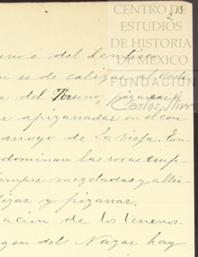 CENTRO DE
ESTUDIOS
DE HISTORIA
DE MEXICO
FUNDACIÓN
Carlos Slim
ó del
es de caliza
a del
apizarradas en el con
arroyo de La Vieja. En
dominan las rocas trap
siempre mezcladas y alter
izas y pizarras.
ación de los terrenos
gen del Nazas hay